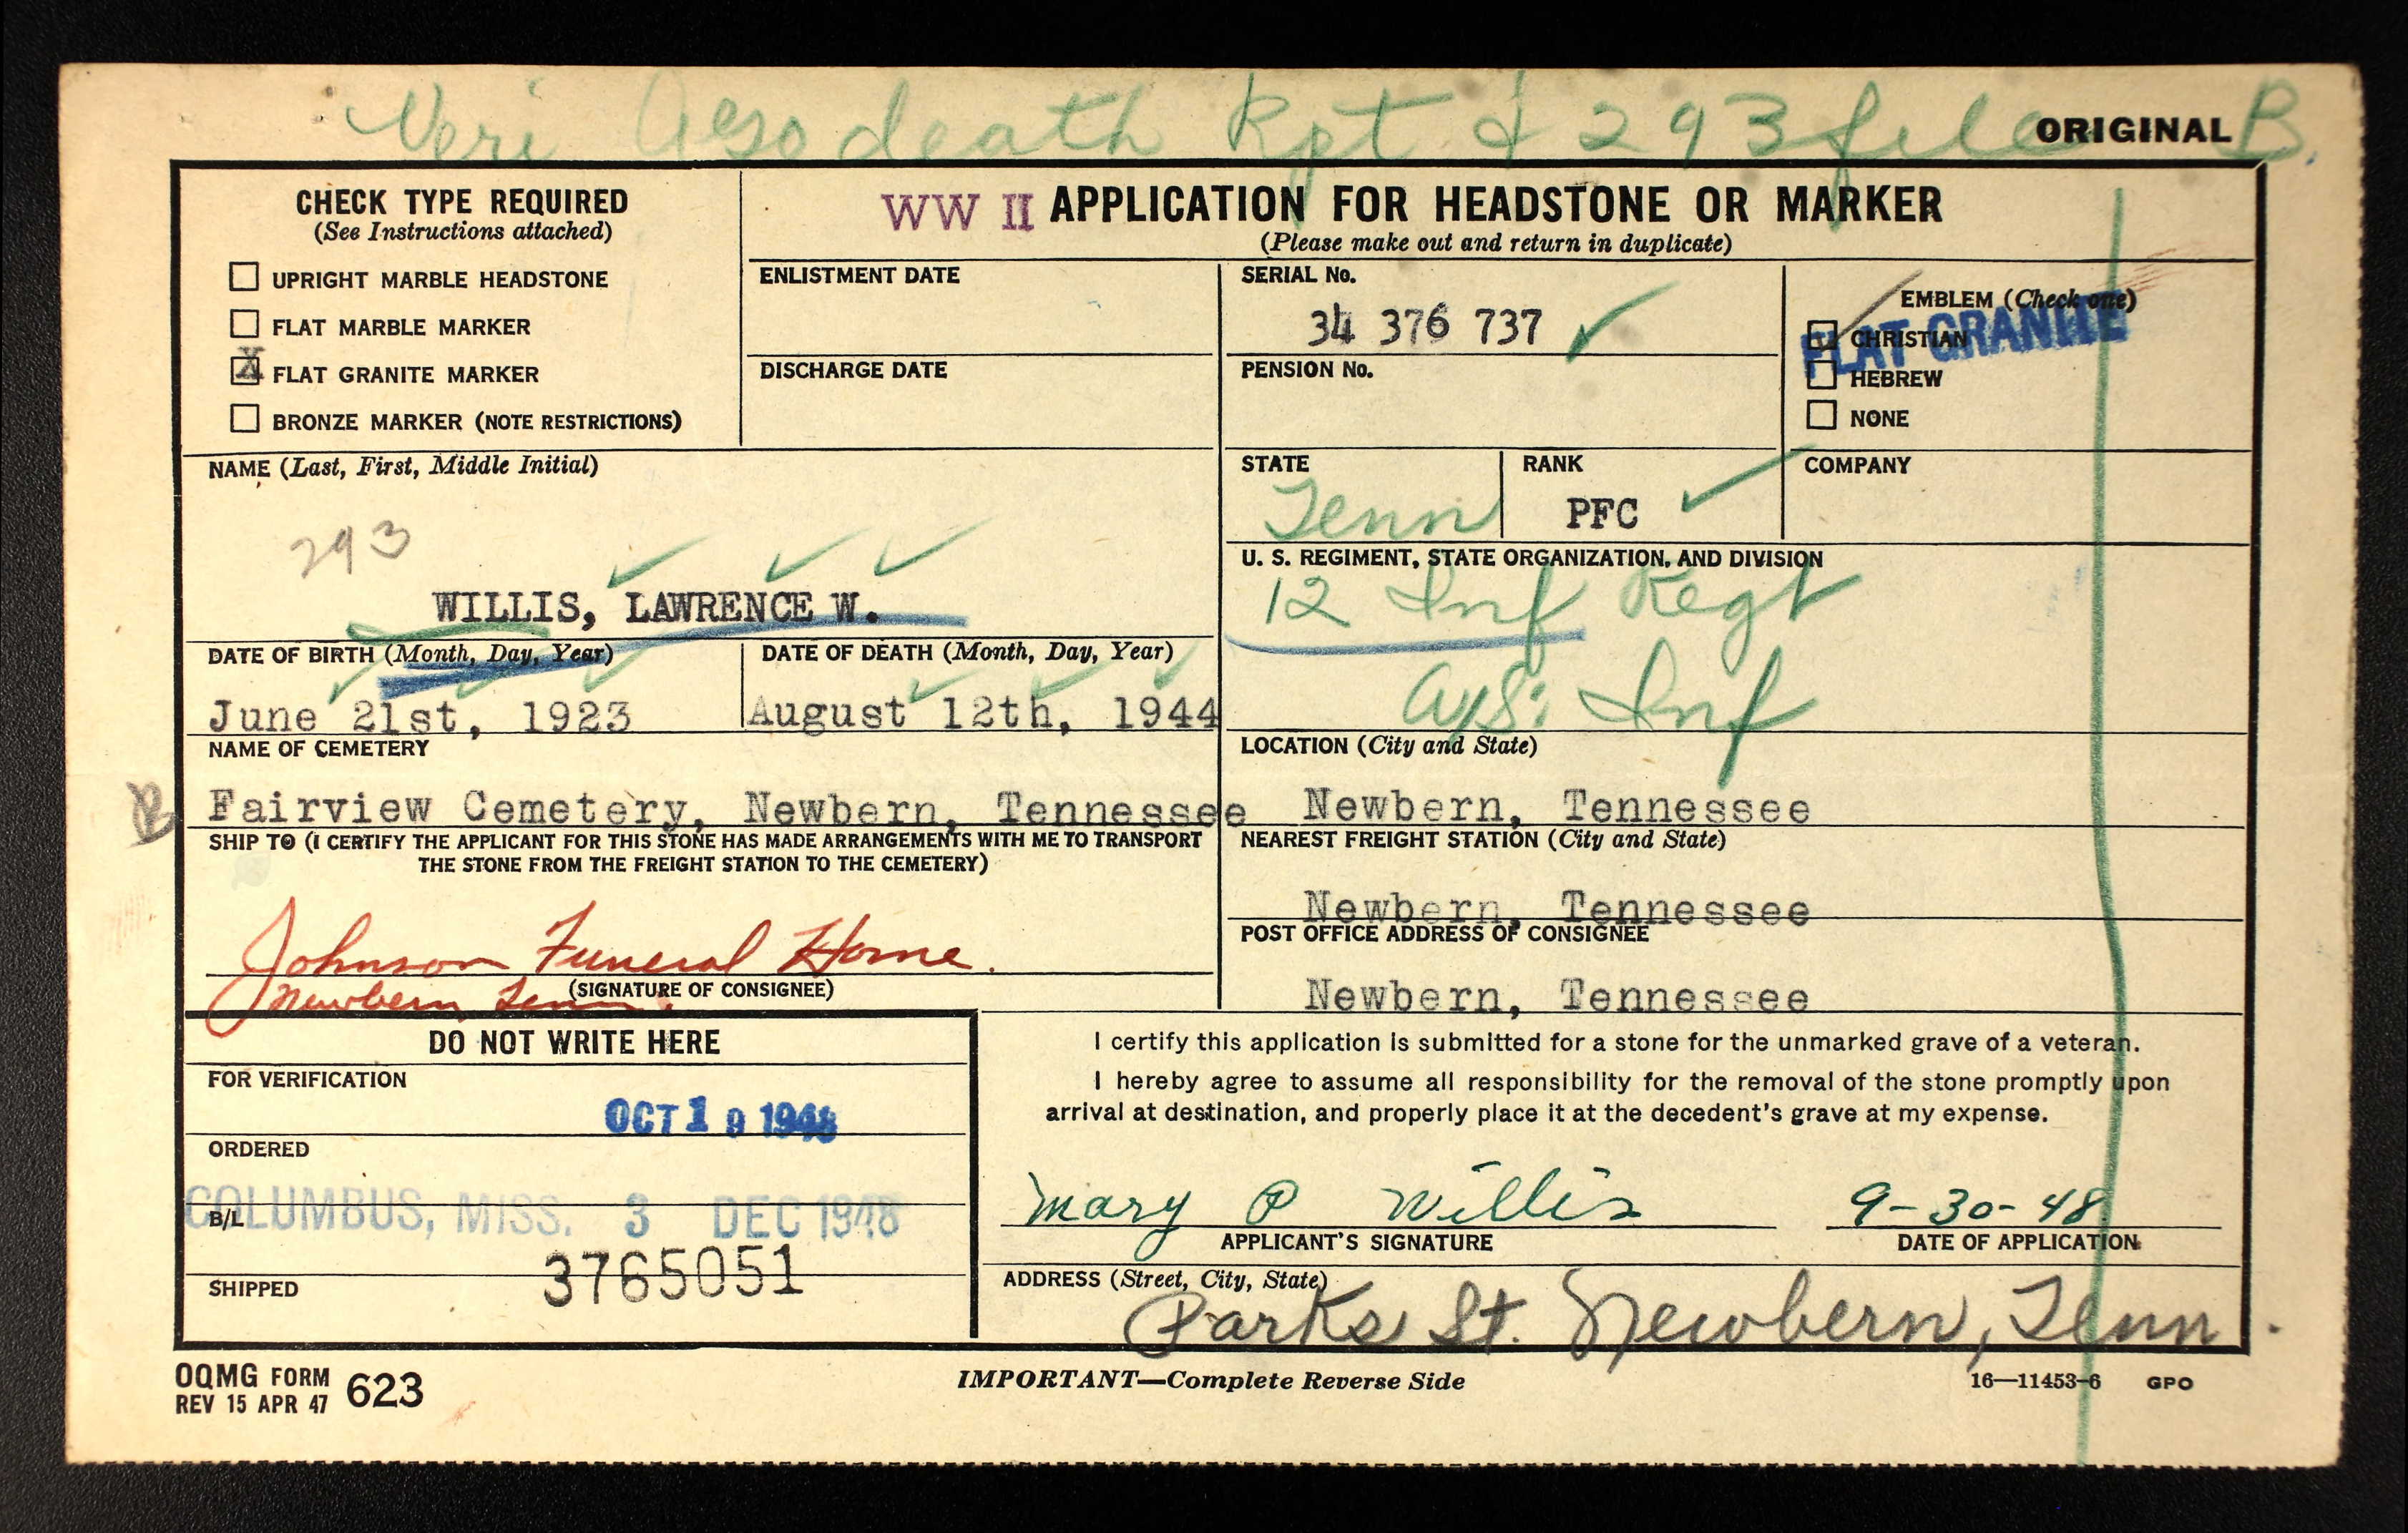 Veri Aeso death Rpt & 293 file B.
ORIGINAL
CHECK TYPE REQUIRED
(See Instructions attached)
UPRIGHT MARBLE HEADSTONE
FLAT MARBLE MARKER
X FLAT GRANITE MARKER
BRONZE MARKER (NOTE RESTRICTIONS)
WW II APPLICATION FOR HEADSTONE OR MARKER
(Please make out and return in duplicate)
ENLISTMENT DATE
DISCHARGE DATE
SERIAL No.
34 376 737
PENSION No.
EMBLEM (Check one)
CHRISTIAN
FLAT GRANITE
HEBREW
NONE
NAME (Last, First, Middle Initial)
293
WILLIS, LAWRENCE W.
STATE
Tenn
RANK
PFC
COMPANY
U. S. REGIMENT, STATE ORGANIZATION, AND DIVISION
12 Inf Regt
A/S: Inf
DATE OF BIRTH (Month, Day, Year)
June 21st, 1923
DATE OF DEATH (Month, Day, Year)
August 12th, 1944
NAME OF CEMETERY
Fairview Cemetery, Newbern, Tennessee
LOCATION (City and State)
Newbern, Tennessee
SHIP TO (I CERTIFY THE APPLICANT FOR THIS STONE HAS MADE ARRANGEMENTS WITH ME TO TRANSPORT
THE STONE FROM THE FREIGHT STATION TO THE CEMETERY)
Johnson Funeral Home.
Newbern Tenn.
(SIGNATURE OF CONSIGNEE)
NEAREST FREIGHT STATION (City and State)
Newbern, Tennessee
POST OFFICE ADDRESS OF CONSIGNEE
Newbern, Tennessee
DO NOT WRITE HERE
FOR VERIFICATION
OCT 19 1948
ORDERED
COLUMBUS, MISS. 3 DEC 1948
B/L
3765051
SHIPPED
I certify this application is submitted for a stone for the unmarked grave of a veteran.
I hereby agree to assume all responsibility for the removal of the stone promptly upon
arrival at destination, and properly place it at the decedent's grave at my expense.
Mary P Willis
9-30-48
APPLICANT'S SIGNATURE
DATE OF APPLICATION
ADDRESS (Street, City, State)
Parks St. Newbern, Tenn.
OQMG FORM 623
REV 15 APR 47
IMPORTANT—Complete Reverse Side
16—11453-6 GPO